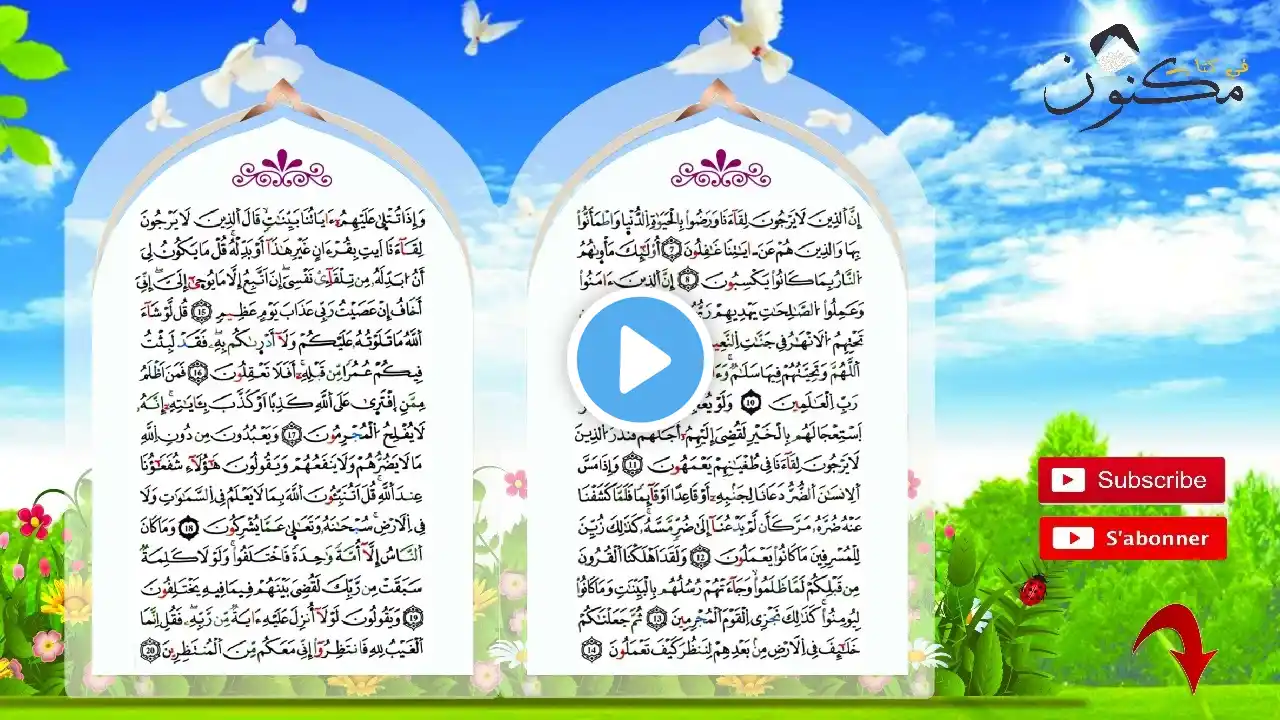 فى كتاب
مكنون
إِنَّ اَلذِينَ لَا يَرْجُونَ لِقَآءَنَا وَرَضُواْ بِالْحَيَوٰةِ اِلدُّنْيَا وَاطْمَأَنُّواْ
بِهَا وَالذِينَ هُمْ عَنَ ـ ايَٰتِنَا غَٰفِلُونَ 7 أُوْلَٰٓئِكَ مَأْوٜىٰهُمُ
اُلنَّارُ بِمَا كَانُواْ يَكْسِبُونَ 8 إِنَّ اَلذِينَ ءَامَنُواْ
وَعَمِلُواْ اُلصَّٰلِحَٰتِ يَهْدِيهِمْ
تَحْتِهِمُ اُلَانْهَٰرُ فِى جَنَّٰتِ
اَللَّهُمَّ وَتَحِيَّتُهُمْ فِيهَا سَلَٰمٌ
رَبِّ اِلْعَٰلَمِينَ 10 وَلَوْ
اَسْتِعْجَالَهُم بِالْخَيْرِ لَقُضِىَ إِلَيْهِمُۥٓ أَجَلُهُمْ فَنَذَرُ اُلذِينَ
لَا يَرْجُونَ لِقَآءَنَا فِى طُغْيَٰنِهِمْ يَعْمَهُونَ 11 وَإِذَا مَسَّ
اَلِانسَٰنَ اَلضُّرُّ دَعَانَا لِجَنۢبِهِۦٓ أَوْ قَاعِداً اَوْ قَآئِماً فَلَمَّا كَشَفْنَا
عَنْهُ ضُرَّهُۥ مَرَّ كَأَن لَّمْ يَدْعُنَآ إِلَىٰ ضُرٍّ مَّسَّهُۥ كَذَٰلِكَ زُيِّنَ
لِلْمُسْرِفِينَ مَا كَانُواْ يَعْمَلُونَ 12 وَلَقَدَ اَهْلَكْنَا اَلْقُرُونَ
مِن قَبْلِكُمْ لَمَّا ظَلَمُواْ وَجَآءَتْهُمْ رُسُلُهُم بِالْبَيِّنَٰتِ وَمَا كَانُواْ
لِيُومِنُواْ كَذَٰلِكَ نَجْزِى اِلْقَوْمَ اَلْمُجْرِمِينَ 13 ثُمَّ جَعَلْنَٰكُمْ
خَلَٰٓئِفَ فِى اِلَارْضِ مِنۢ بَعْدِهِمْ لِنَنظُرَ كَيْفَ تَعْمَلُونَ 14
وَإِذَا تُتْلَىٰ عَلَيْهِمُۥٓ ءَايَاتُنَا بَيِّنَٰتٍ قَالَ اَلذِينَ لَا يَرْجُونَ
لِقَآءَنَا اَيتِ بِقُرْءَانٍ غَيْرِ هَٰذَآ أَوْ بَدِّلْهُ قُلْ مَا يَكُونُ لِىَ
أَنُ ابَدِّلَهُۥ مِن تِلْقَآءِىْ نَفْسِىَ إِنَ اَتَّبِعُ إِلَّا مَا يُوحَىٰٓ إِلَىَّ إِنِّىَ
أَخَافُ إِنْ عَصَيْتُ رَبِّى عَذَابَ يَوْمٍ عَظِيمٍ 15 قُل لَّوْ شَآءَ
اَللَّهُ مَا تَلَوْتُهُۥ عَلَيْكُمْ وَلَآ أَدْرٜىٰكُم بِهِۦ فَقَدْ لَبِثْتُ
فِيكُمْ عُمُراً مِّن قَبْلِهِۦٓ أَفَلَا تَعْقِلُونَ 16 فَمَنَ اَظْلَمُ
مِمَّنِ اِفْتَرٜىٰ عَلَى اَللَّهِ كَذِباً اَوْ كَذَّبَ بِـَٔايَٰتِهِۦٓ إِنَّهُۥ
لَا يُفْلِحُ اُلْمُجْرِمُونَ 17 وَيَعْبُدُونَ مِن دُونِ اِللَّهِ
مَا لَا يَضُرُّهُمْ وَلَا يَنفَعُهُمْ وَيَقُولُونَ هَٰٓؤُلَآءِ شُفَعَٰٓؤُنَا
عِندَ اَللَّهِ قُلَ اَتُنَبِّـُٔونَ اَللَّهَ بِمَا لَا يَعْلَمُ فِى اِلسَّمَٰوَٰتِ وَلَا
فِى اِلَارْضِ سُبْحَٰنَهُۥ وَتَعَٰلَىٰ عَمَّا يُشْرِكُونَ 18 وَمَا كَانَ
اَلنَّاسُ إِلَّآ أُمَّةً وَٰحِدَةً فَاخْتَلَفُواْ وَلَوْلَا كَلِمَةٌ
سَبَقَتْ مِن رَّبِّكَ لَقُضِىَ بَيْنَهُمْ فِيمَا فِيهِ يَخْتَلِفُونَ
19 وَيَقُولُونَ لَوْلَآ أُنزِلَ عَلَيْهِ ءَايَةٌ مِّن رَّبِّهِۦ فَقُلِ اِنَّمَا
اَلْغَيْبُ لِلهِ فَانتَظِرُوٓاْ إِنِّى مَعَكُم مِّنَ اَلْمُنتَظِرِينَ 20
Subscribe
S'abonner